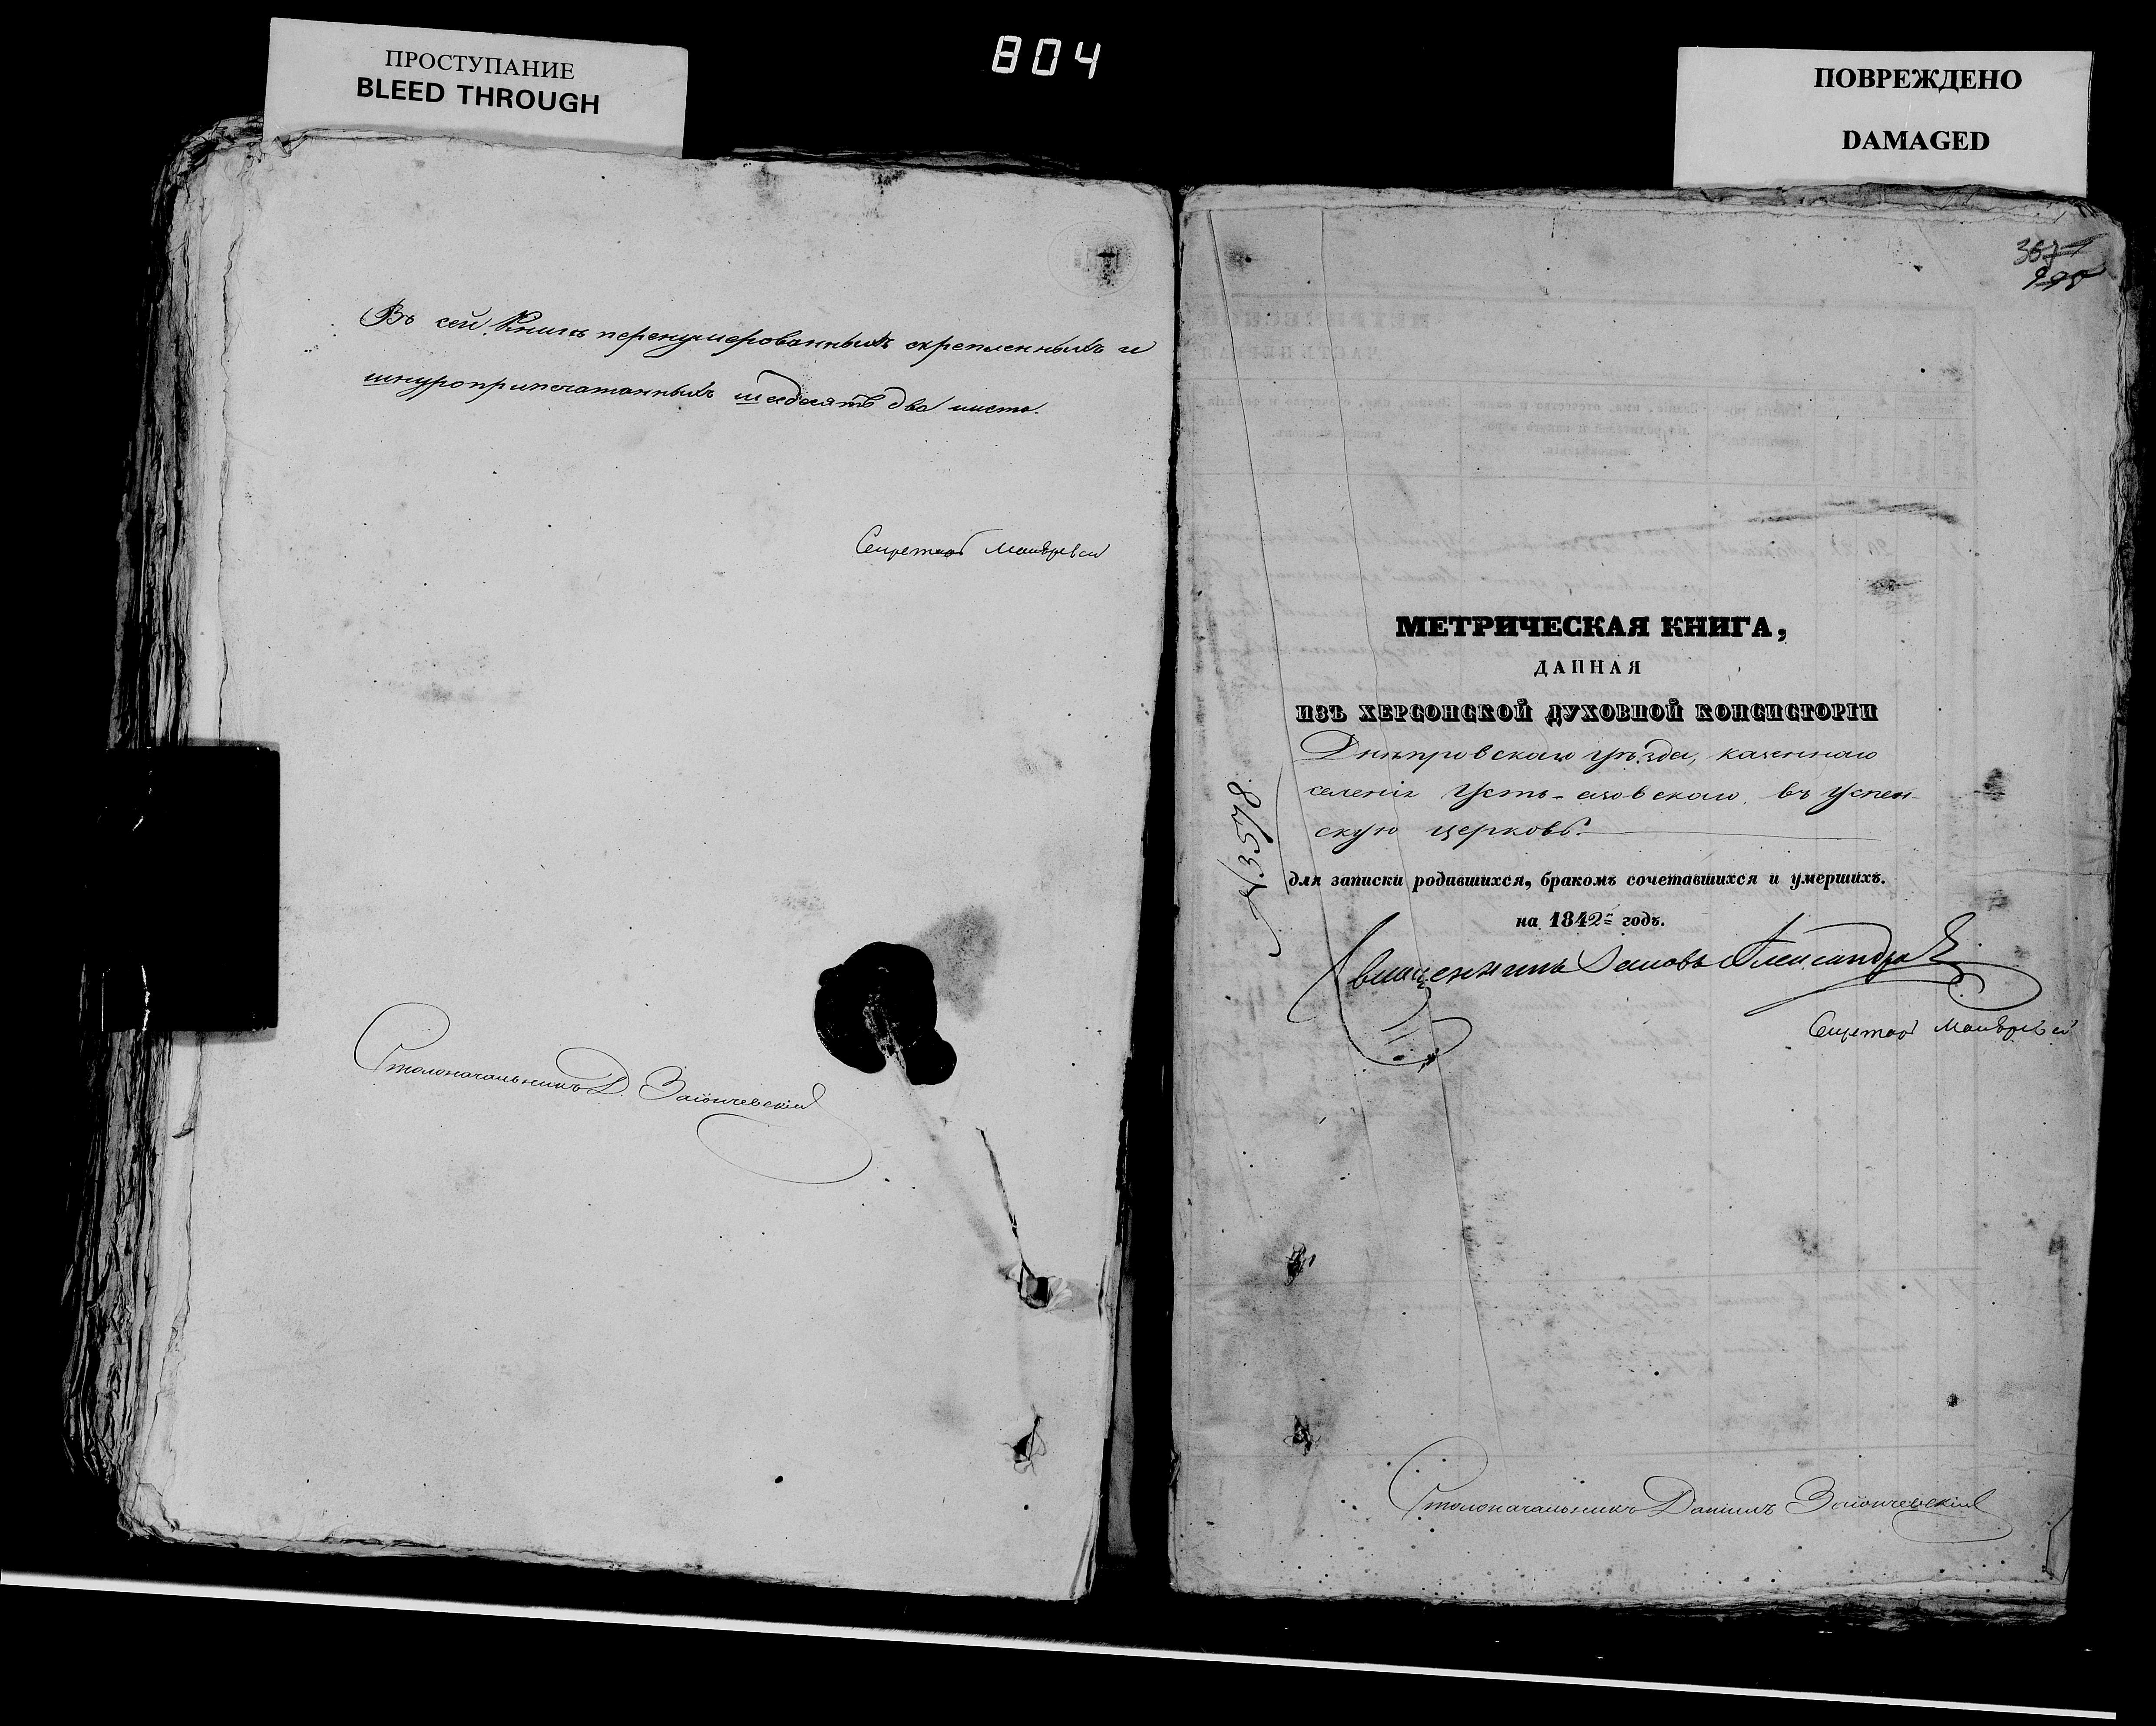 ПРОСТУПАНИЕ
BLEED THROUGH
804
ПОВРЕЖДЕНО
DAMAGED
Въ сей Книгѣ перенумерованныхъ скрепленныхъ и
шнуроприпечатанныхъ шесдесятъ два листа.
Секретарь
Столоначальникъ Д. Заіончевскій
367
МЕТРИЧЕСКАЯ КНИГА,
ДАННАЯ
ИЗЪ ХЕРСОНСКОЙ ДУХОВНОЙ КОНСИСТОРІИ
Днѣпровскаго уѣзда, казеннаго
селенія въ Успен-
скую церковь.
№ 3578
для записки родившихся, бракомъ сочетавшихся и умершихъ.
на 1842й годъ.
Священникъ Александръ
Секретарь
Столоначальникъ Даніилъ Заіончевскій